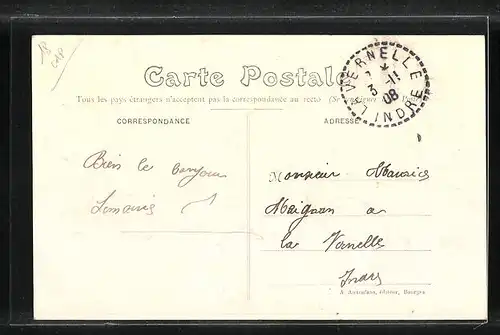 Carte Postale
Tous les pays étrangers n'acceptent pas la correspondance au recto (Se
CORRESPONDANCE
ADRESSE
VERNELLE
INDRE
3 -11
08
Bien le bonjour
Monsieur Maurice
Meignan a
La Vernelle
Indre
A. Auxenfans, éditeur, Bourges